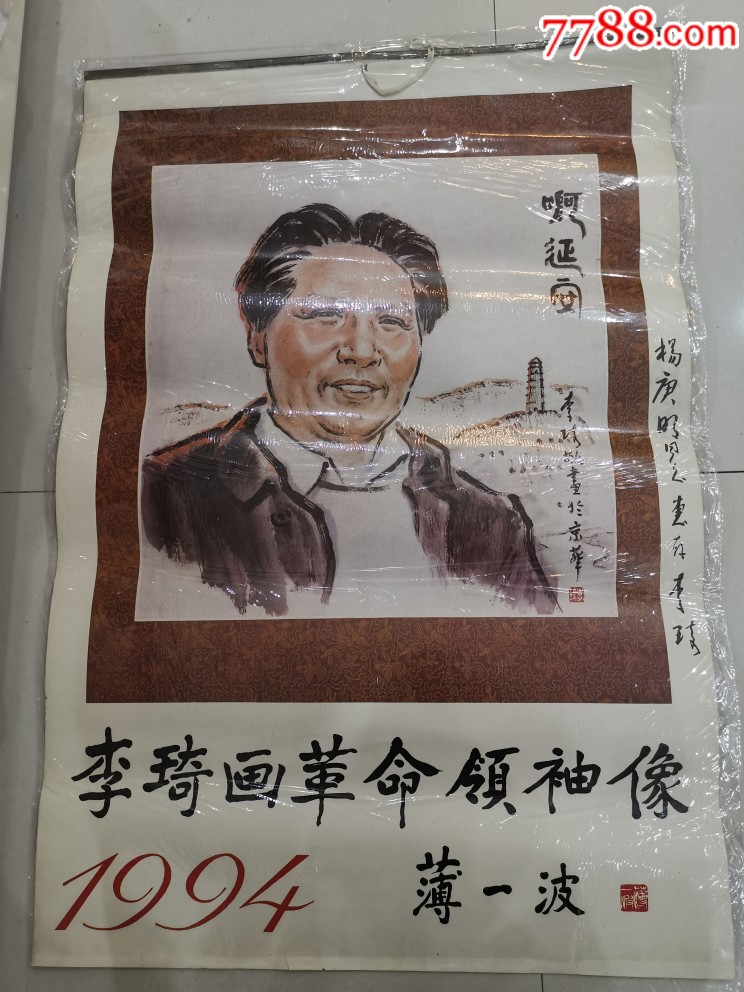 7788.com
啊延安
李琦敬画于京华
杨庚明同志惠存 李琦
李琦画革命领袖像
1994
薄一波
薄一波